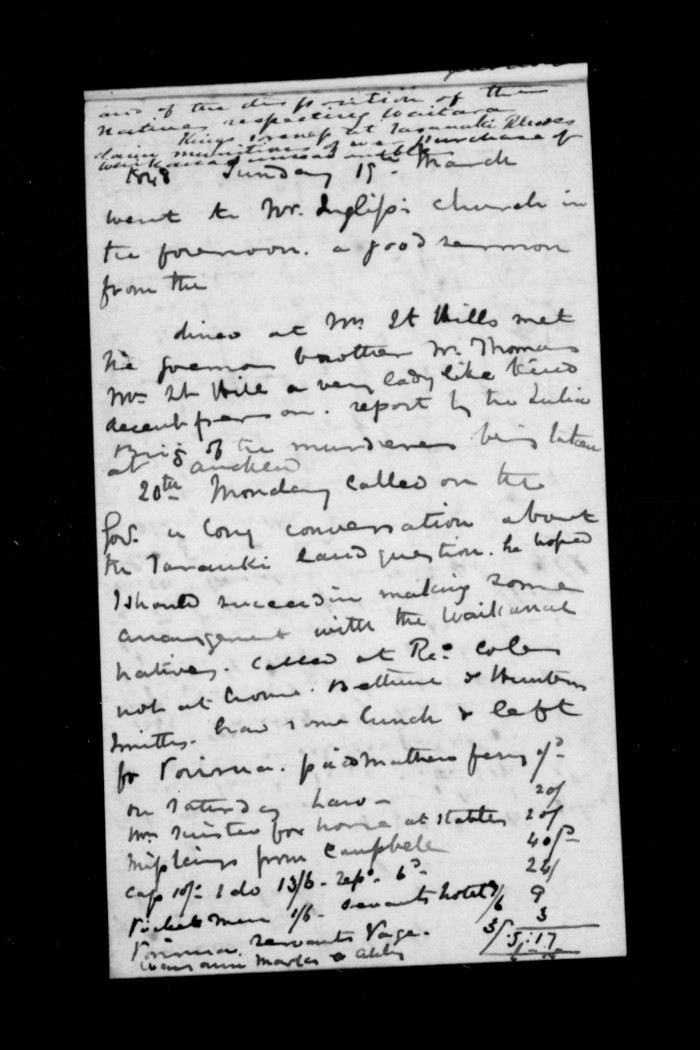 and of the disposition of the
Natives respecting Waitara
Kings at Taranaki Rhodes
claim munitions of war purchase of
Waikanae
1848 Sunday 19th March
went to Mr. Inglis's church in
the forenoon. a good sermon
from the
dined at Mr. St Hills met
his brother Mr. Thomas
Mrs St Hill a very lady like kind
decent person. report by the
Brig of the murderer being taken
at Auckland
20th Monday called on the
Govr. a long conversation about
the Taranaki land question. he hoped
I should succeed in making some
arrangement with the Waikanae
Natives. called at Revd Coles
not at home. Bethune & Hunters
Smiths. had some lunch & left
for Porirua. paid Mathew
on Saturday
Mr for horse at stables 20/
from Campbell 40/
cap 10/- 1 do 13/6 - 6d 24/
men 1/6 - servants hotel 9
3
Porirua servants 3/ 5:17